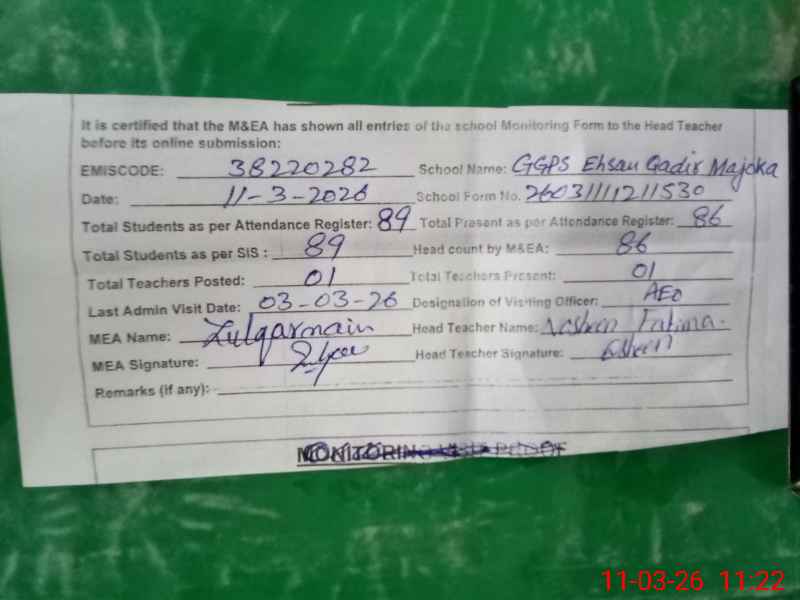 It is certified that the M&EA has shown all entries of the school Monitoring Form to the Head Teacher
before its online submission:
EMISCODE: 38220282 School Name: GGPS Ehsan Qadir Majoka
Date: 11-3-2026 School Form No. 26031111211530
Total Students as per Attendance Register: 89 Total Present as per Attendance Register: 86
Total Students as per SIS : 89 Head count by M&EA: 86
Total Teachers Posted: 01 Total Teachers Present: 01
Last Admin Visit Date: 03-03-26 Designation of Visiting Officer: AEO
MEA Name: Zulqarnain Head Teacher Name: Nosheen Fatima.
MEA Signature: Head Teacher Signature:
Remarks (if any):
MONITORING PROOF
11-03-26 11:22